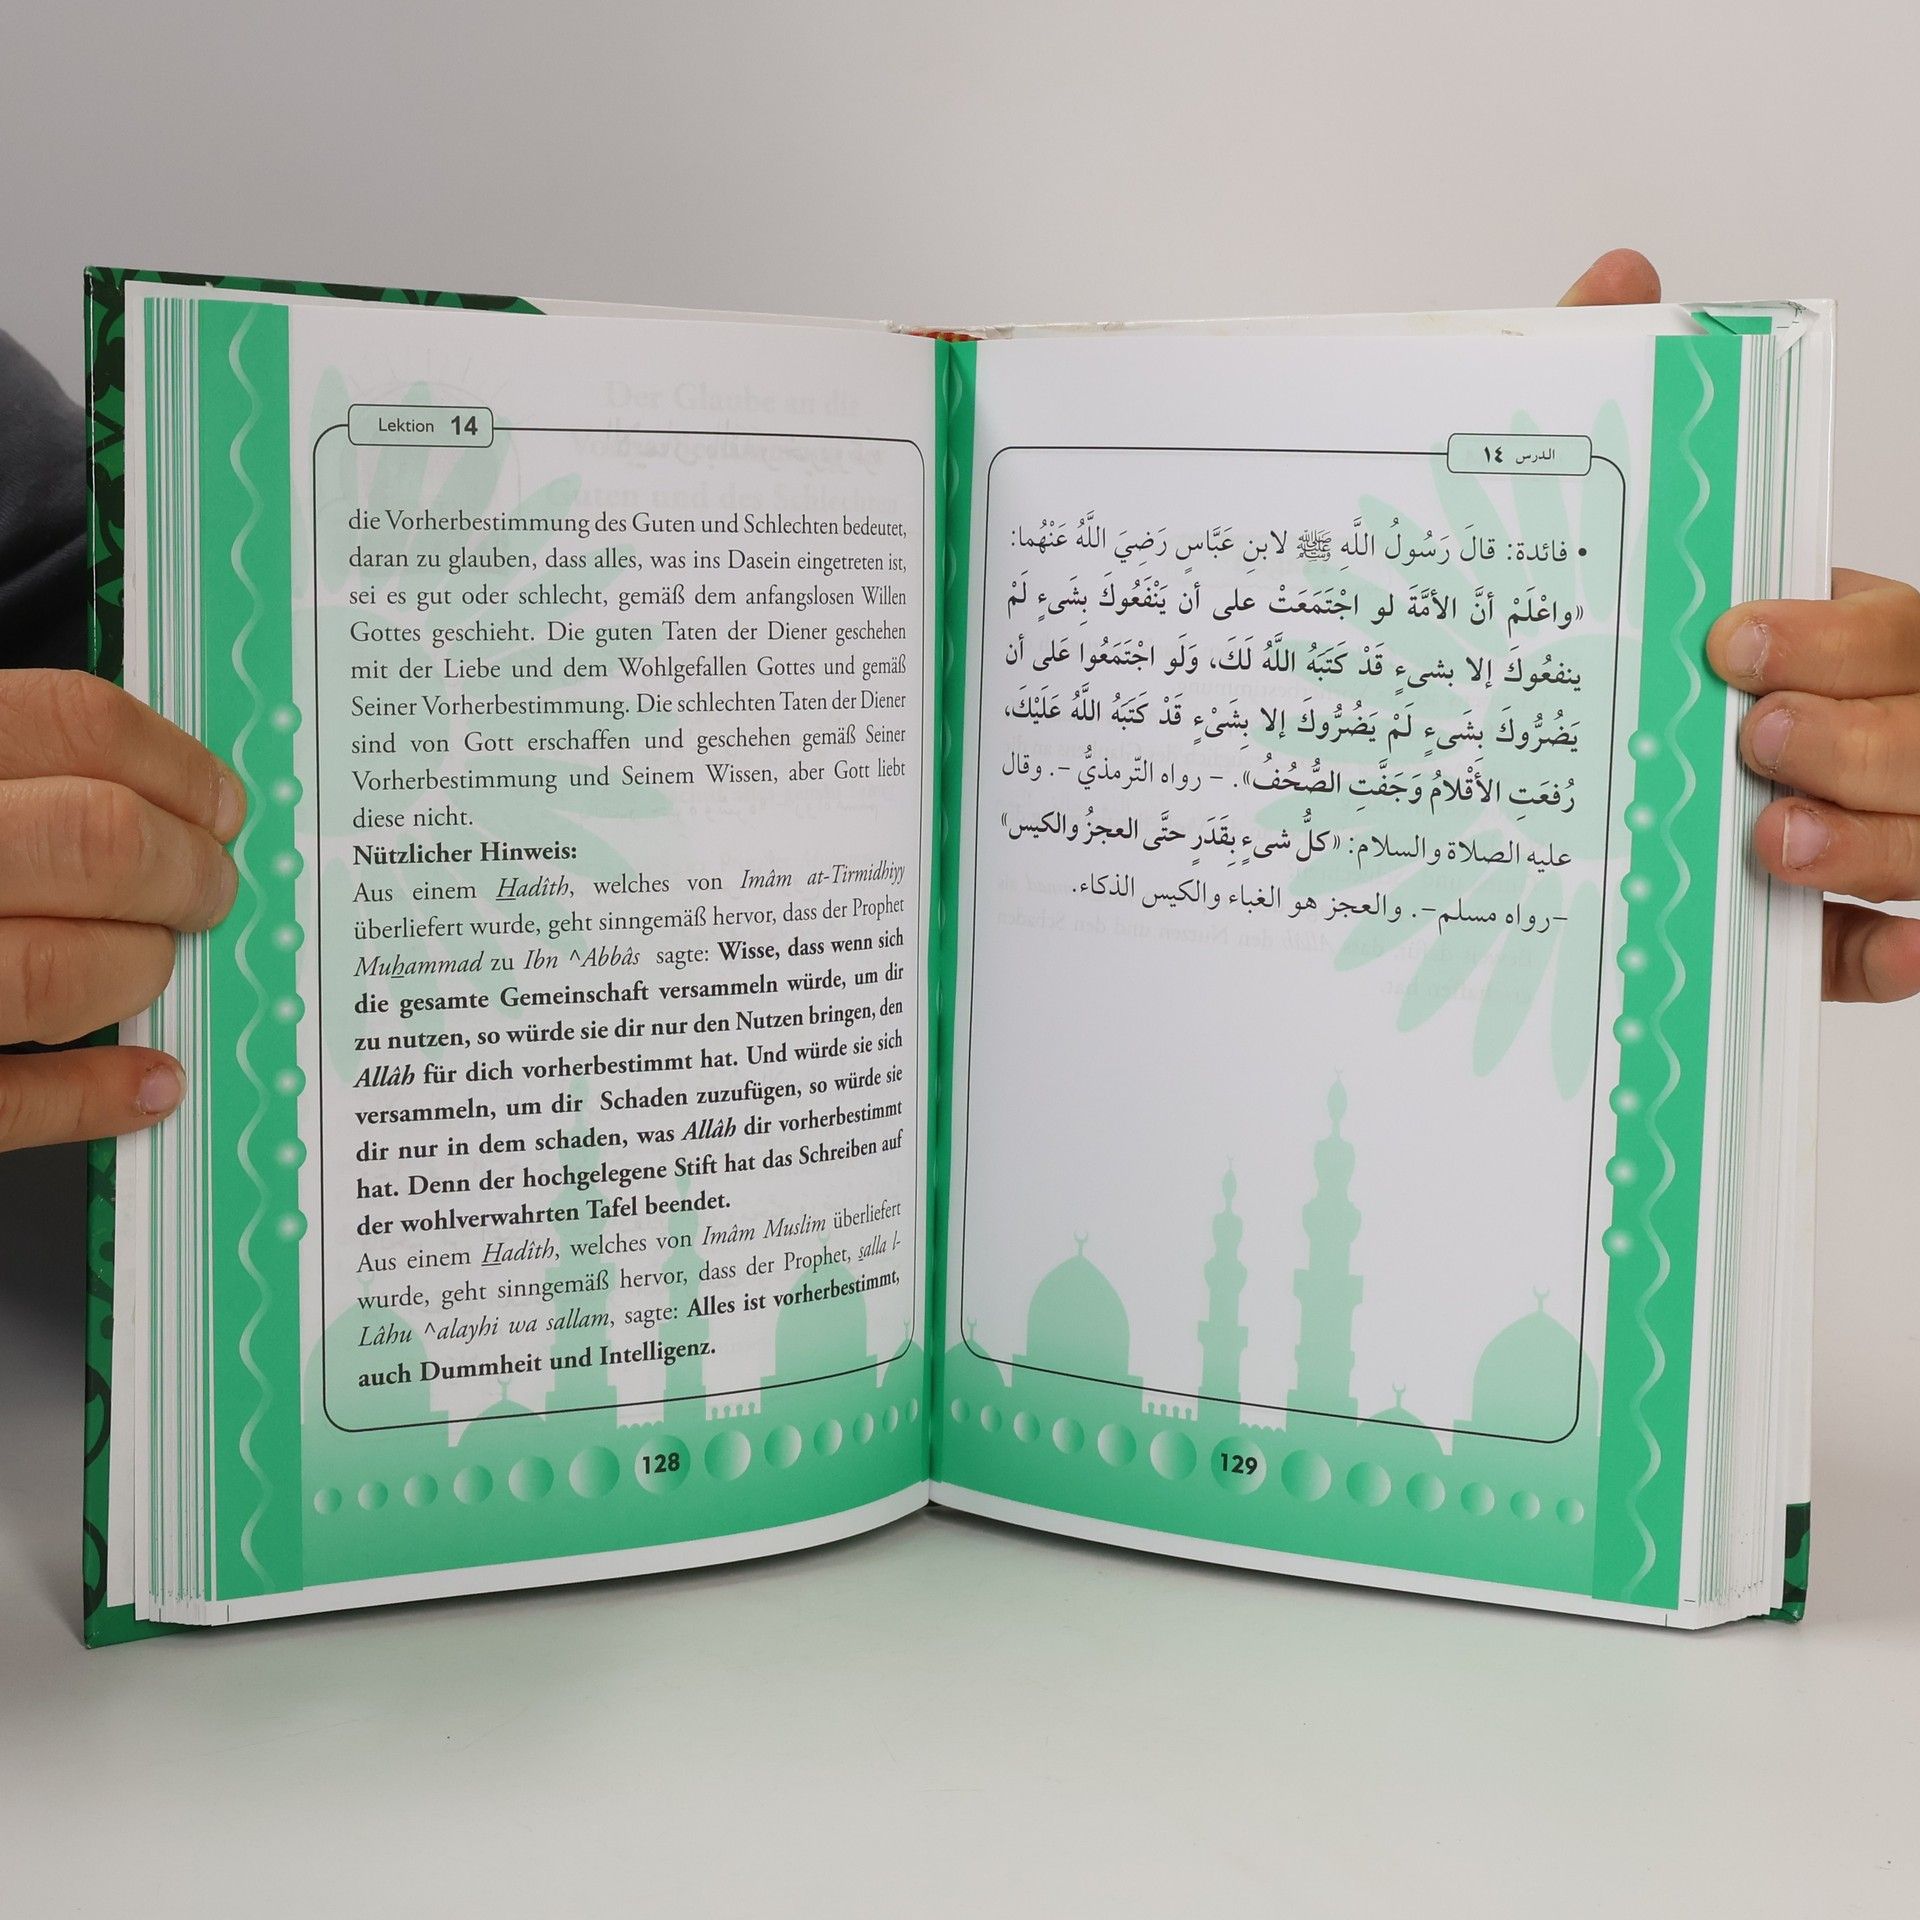 Lektion 14
die Vorherbestimmung des Guten und Schlechten bedeutet,
daran zu glauben, dass alles, was ins Dasein eingetreten ist,
sei es gut oder schlecht, gemäß dem anfangslosen Willen
Gottes geschieht. Die guten Taten der Diener geschehen
mit der Liebe und dem Wohlgefallen Gottes und gemäß
Seiner Vorherbestimmung. Die schlechten Taten der Diener
sind von Gott erschaffen und geschehen gemäß Seiner
Vorherbestimmung und Seinem Wissen, aber Gott liebt
diese nicht.
Nützlicher Hinweis:
Aus einem Hadîth, welches von Imâm at-Tirmidhiyy
überliefert wurde, geht sinngemäß hervor, dass der Prophet
Muhammad zu Ibn ^Abbâs sagte: Wisse, dass wenn sich
die gesamte Gemeinschaft versammeln würde, um dir
zu nutzen, so würde sie dir nur den Nutzen bringen, den
Allâh für dich vorherbestimmt hat. Und würde sie sich
versammeln, um dir Schaden zuzufügen, so würde sie
dir nur in dem schaden, was Allâh dir vorherbestimmt
hat. Denn der hochgelegene Stift hat das Schreiben auf
der wohlverwahrten Tafel beendet.
Aus einem Hadîth, welches von Imâm Muslim überliefert
wurde, geht sinngemäß hervor, dass der Prophet, salla l-
Lâhu ^alayhi wa sallam, sagte: Alles ist vorherbestimmt,
auch Dummheit und Intelligenz.
128
الدرس ١٤
• فائدة: قالَ رَسُولُ اللَّهِ ﷺ لابنِ عَبَّاسٍ رَضِيَ اللَّهُ عَنْهُما:
«واعْلَمْ أنَّ الأمَّةَ لو اجْتَمَعَتْ على أن يَنْفَعُوكَ بِشَىءٍ لَمْ
ينفعُوكَ إلا بشىءٍ قَدْ كَتَبَهُ اللَّهُ لَكَ، وَلَو اجْتَمَعُوا عَلى أن
يَضُرُّوكَ بِشَىءٍ لَمْ يَضُرُّوكَ إلا بِشَىْءٍ قَدْ كَتَبَهُ اللَّهُ عَلَيْكَ،
رُفعَتِ الأَقْلامُ وَجَفَّتِ الصُّحُفُ». – رواه التّرمذيُّ –. وقال
عليه الصلاة والسلام: «كلُّ شىءٍ بِقَدَرٍ حتَّى العجزُ والكيس»
–رواه مسلم–. والعجز هو الغباء والكيس الذكاء.
129